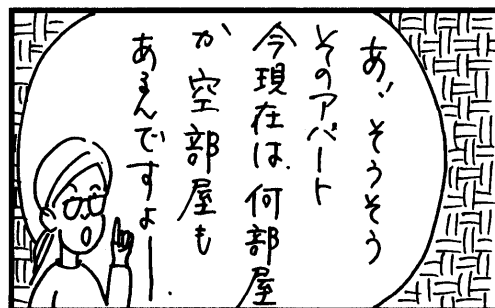 あ、そうそう
そのアパート
今現在は、何部屋
か空部屋も
あるんですよー